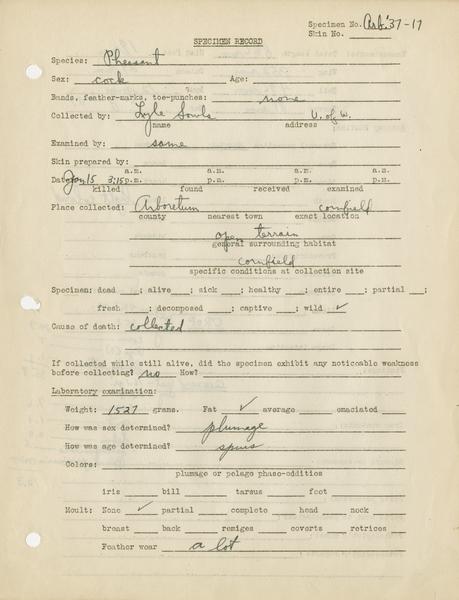 Specimen No. Arb. '37-17
Skin No. ____
SPECIMEN RECORD
Species: Pheasant
Sex: cock Age: ____
Bands, feather-marks, toe-punches: none
Collected by: Lyle Sowls U. of W.
name address
Examined by: same
Skin prepared by: ____
a.m. a.m. a.m. a.m.
Date: Jan 15 3:15 p.m. p.m. p.m. p.m.
killed found received examined
Place collected: Arboretum cornfield
county nearest town exact location
open terrain
general surrounding habitat
cornfield
specific conditions at collection site
Specimen: dead ___; alive___; sick ___; healthy ___; entire ___; partial ___;
fresh ___; decomposed ___; captive ___; wild ✓
Cause of death: collected
If collected while still alive, did the specimen exhibit any noticeable weakness
before collecting? no How? ____
Laboratory examination:
Weight: 1527 grams. Fat ✓ average ____ emaciated ____
How was sex determined? plumage
How was age determined? spurs
Colors: ____
plumage or pelage phase-oddities
iris ____ bill ____ tarsus ____ foot ____
Moult: None ✓ partial ____ complete ____ head ____ neck ____
breast ____ back ____ remiges ____ coverts ____ retrices ____
Feather wear a lot